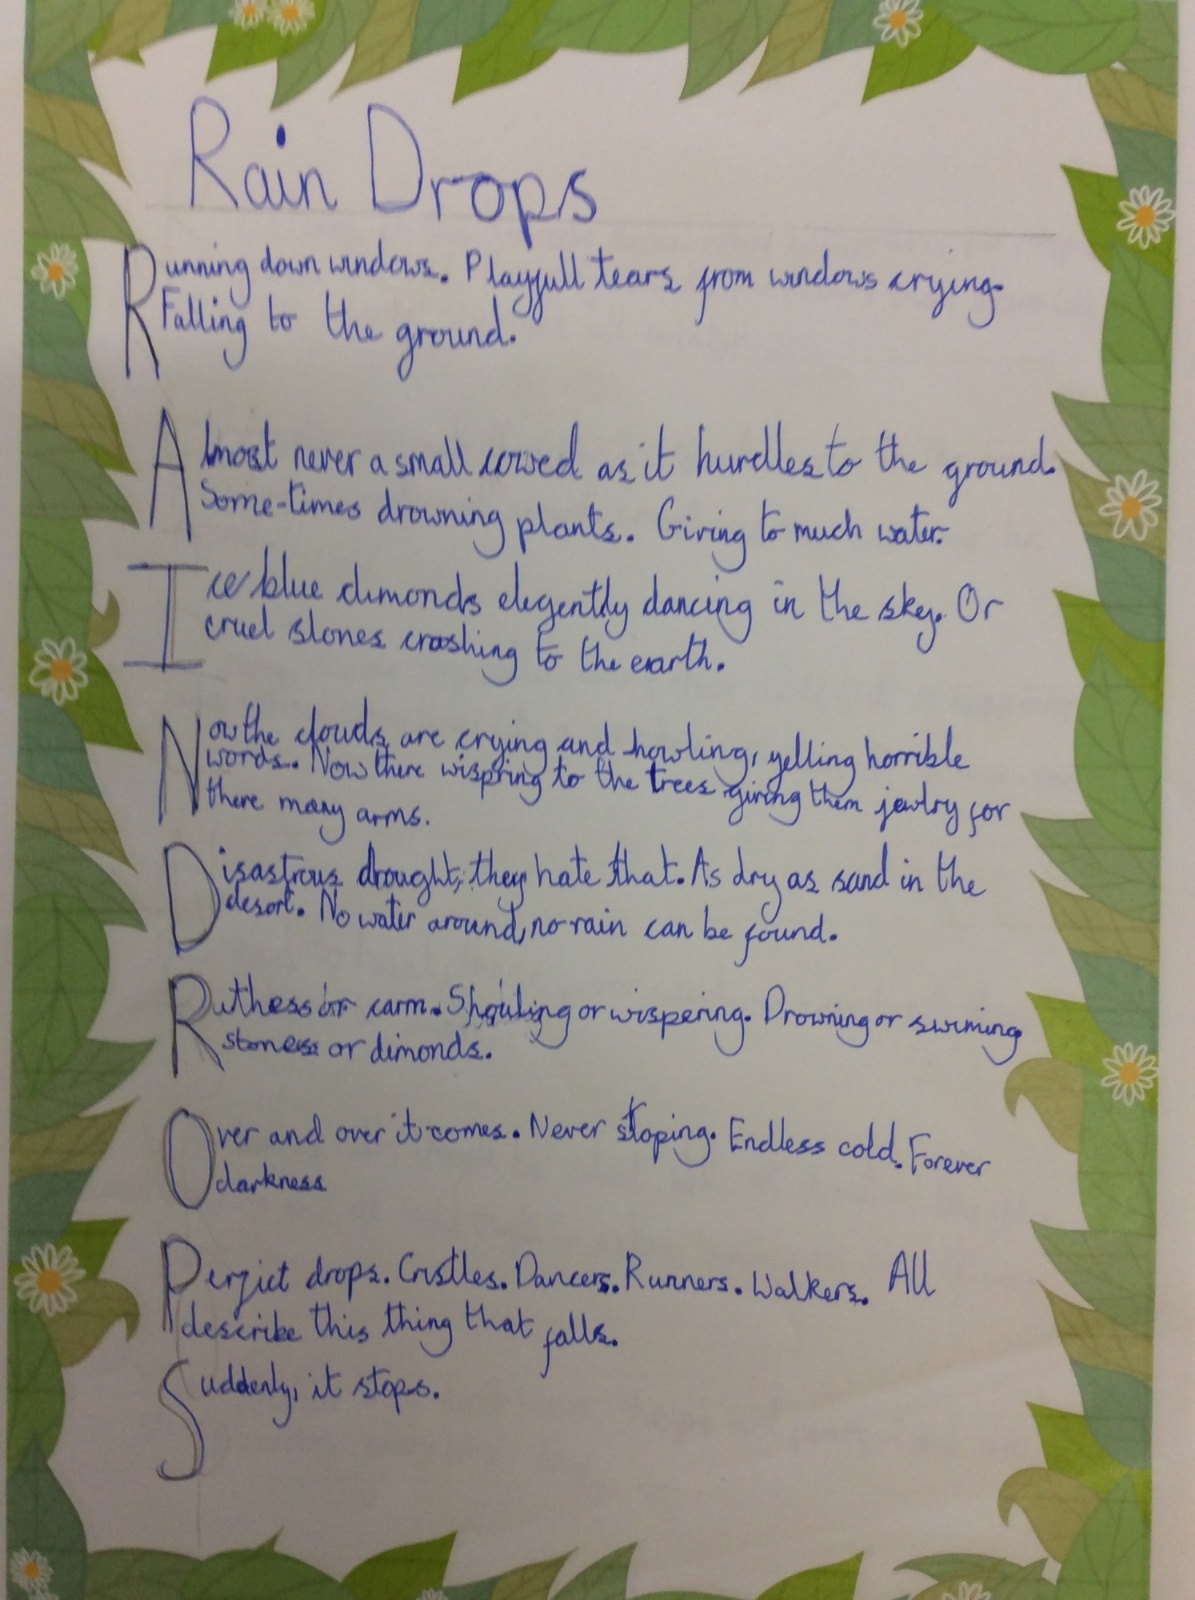 Rain Drops
Running down windows. Playfull tears from windows crying.
Falling to the ground.
Almost never a small crowed as it hurdles to the ground.
Some-times drowning plants. Giving to much water.
Ice blue dimonds elegently dancing in the sky. Or
cruel stones crashing to the earth.
Now the clouds are crying and howling, yelling horrible
words. Now there wispring to the trees giving them jewlry for
there many arms.
Disastrous drought, they hate that. As dry as sand in the
desort. No water around, no rain can be found.
Ruthess or carm. Shouting or wispering. Drowning or swiming
stones or dimonds.
Over and over it comes. Never stoping. Endless cold. Forever
darkness
Perfict drops. Cristles. Dancers. Runners. Walkers. All
describe this thing that falls.
Suddenly, it stops.